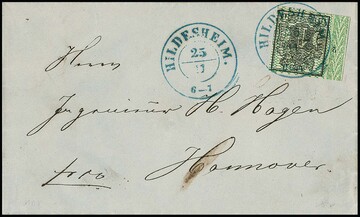 HILDESHEIM.
25
11
6–7
HILDESHEIM.
Herrn
Ingenieur H. Hagen
frco
Hannover.